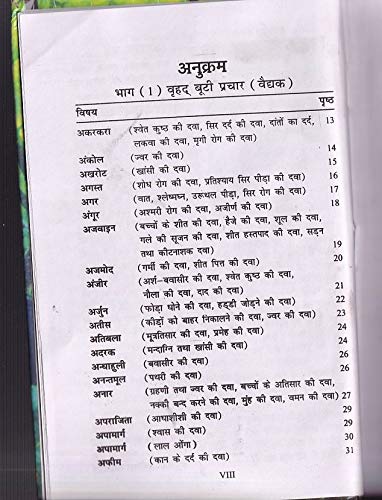 अनुक्रम
भाग (1) वृहद् बूटी प्रचार (वैद्यक)
विषय पृष्ठ
अकरकरा (श्वेत कुष्ठ की दवा, सिर दर्द की दवा, दांतों का दर्द, 13
लकवा की दवा, मृगी रोग की दवा)
अंकोल (ज्वर की दवा) 14
अखरोट (खांसी की दवा) 15
अगस्त (शोध रोग की दवा, प्रतिश्याय सिर पीड़ा की दवा) 16
अगर (वात, श्लेष्मघ्न, उरूथल पीड़ा, सिर रोग की दवा) 17
अंगूर (अश्मरी रोग की दवा, अजीर्ण की दवा) 18
अजवाइन (बच्चों के शीत की दवा, हैजे की दवा, शूल की दवा,
गले की सूजन की दवा, शीत हस्तपाद की दवा, सड़न
तथा कीटनाशक दवा) 19
अजमोद (गर्मी की दवा, शीत पित्त की दवा) 20
अंजीर (अर्श-बवासीर की दवा, श्वेत कुष्ठ की दवा,
नौला की दवा, दाद की दवा) 21
अर्जुन (फोड़ा धोने की दवा, हड्डी जोड़ने की दवा) 22
अतीस (कीड़ों को बाहर निकालने की दवा, ज्वर की दवा) 23
अतिबला (मूत्रतिसार की दवा, प्रमेह की दवा) 24
अदरक (मन्दाग्नि तथा खांसी की दवा) 24
अन्धाहुली (बवासीर की दवा) 26
अनन्तमूल (पथरी की दवा) 26
अनार (ग्रहणी तथा ज्वर की दवा, बच्चों के अतिसार की दवा,
नक्की बन्द करने की दवा, मुंह की दवा, वमन की दवा) 27
अपराजिता (आधाशीशी की दवा) 29
अपामार्ग (श्वास की दवा) 29
अपामार्ग (लाल ओंगा) 31
अफीम (कान के दर्द की दवा) 31
VIII